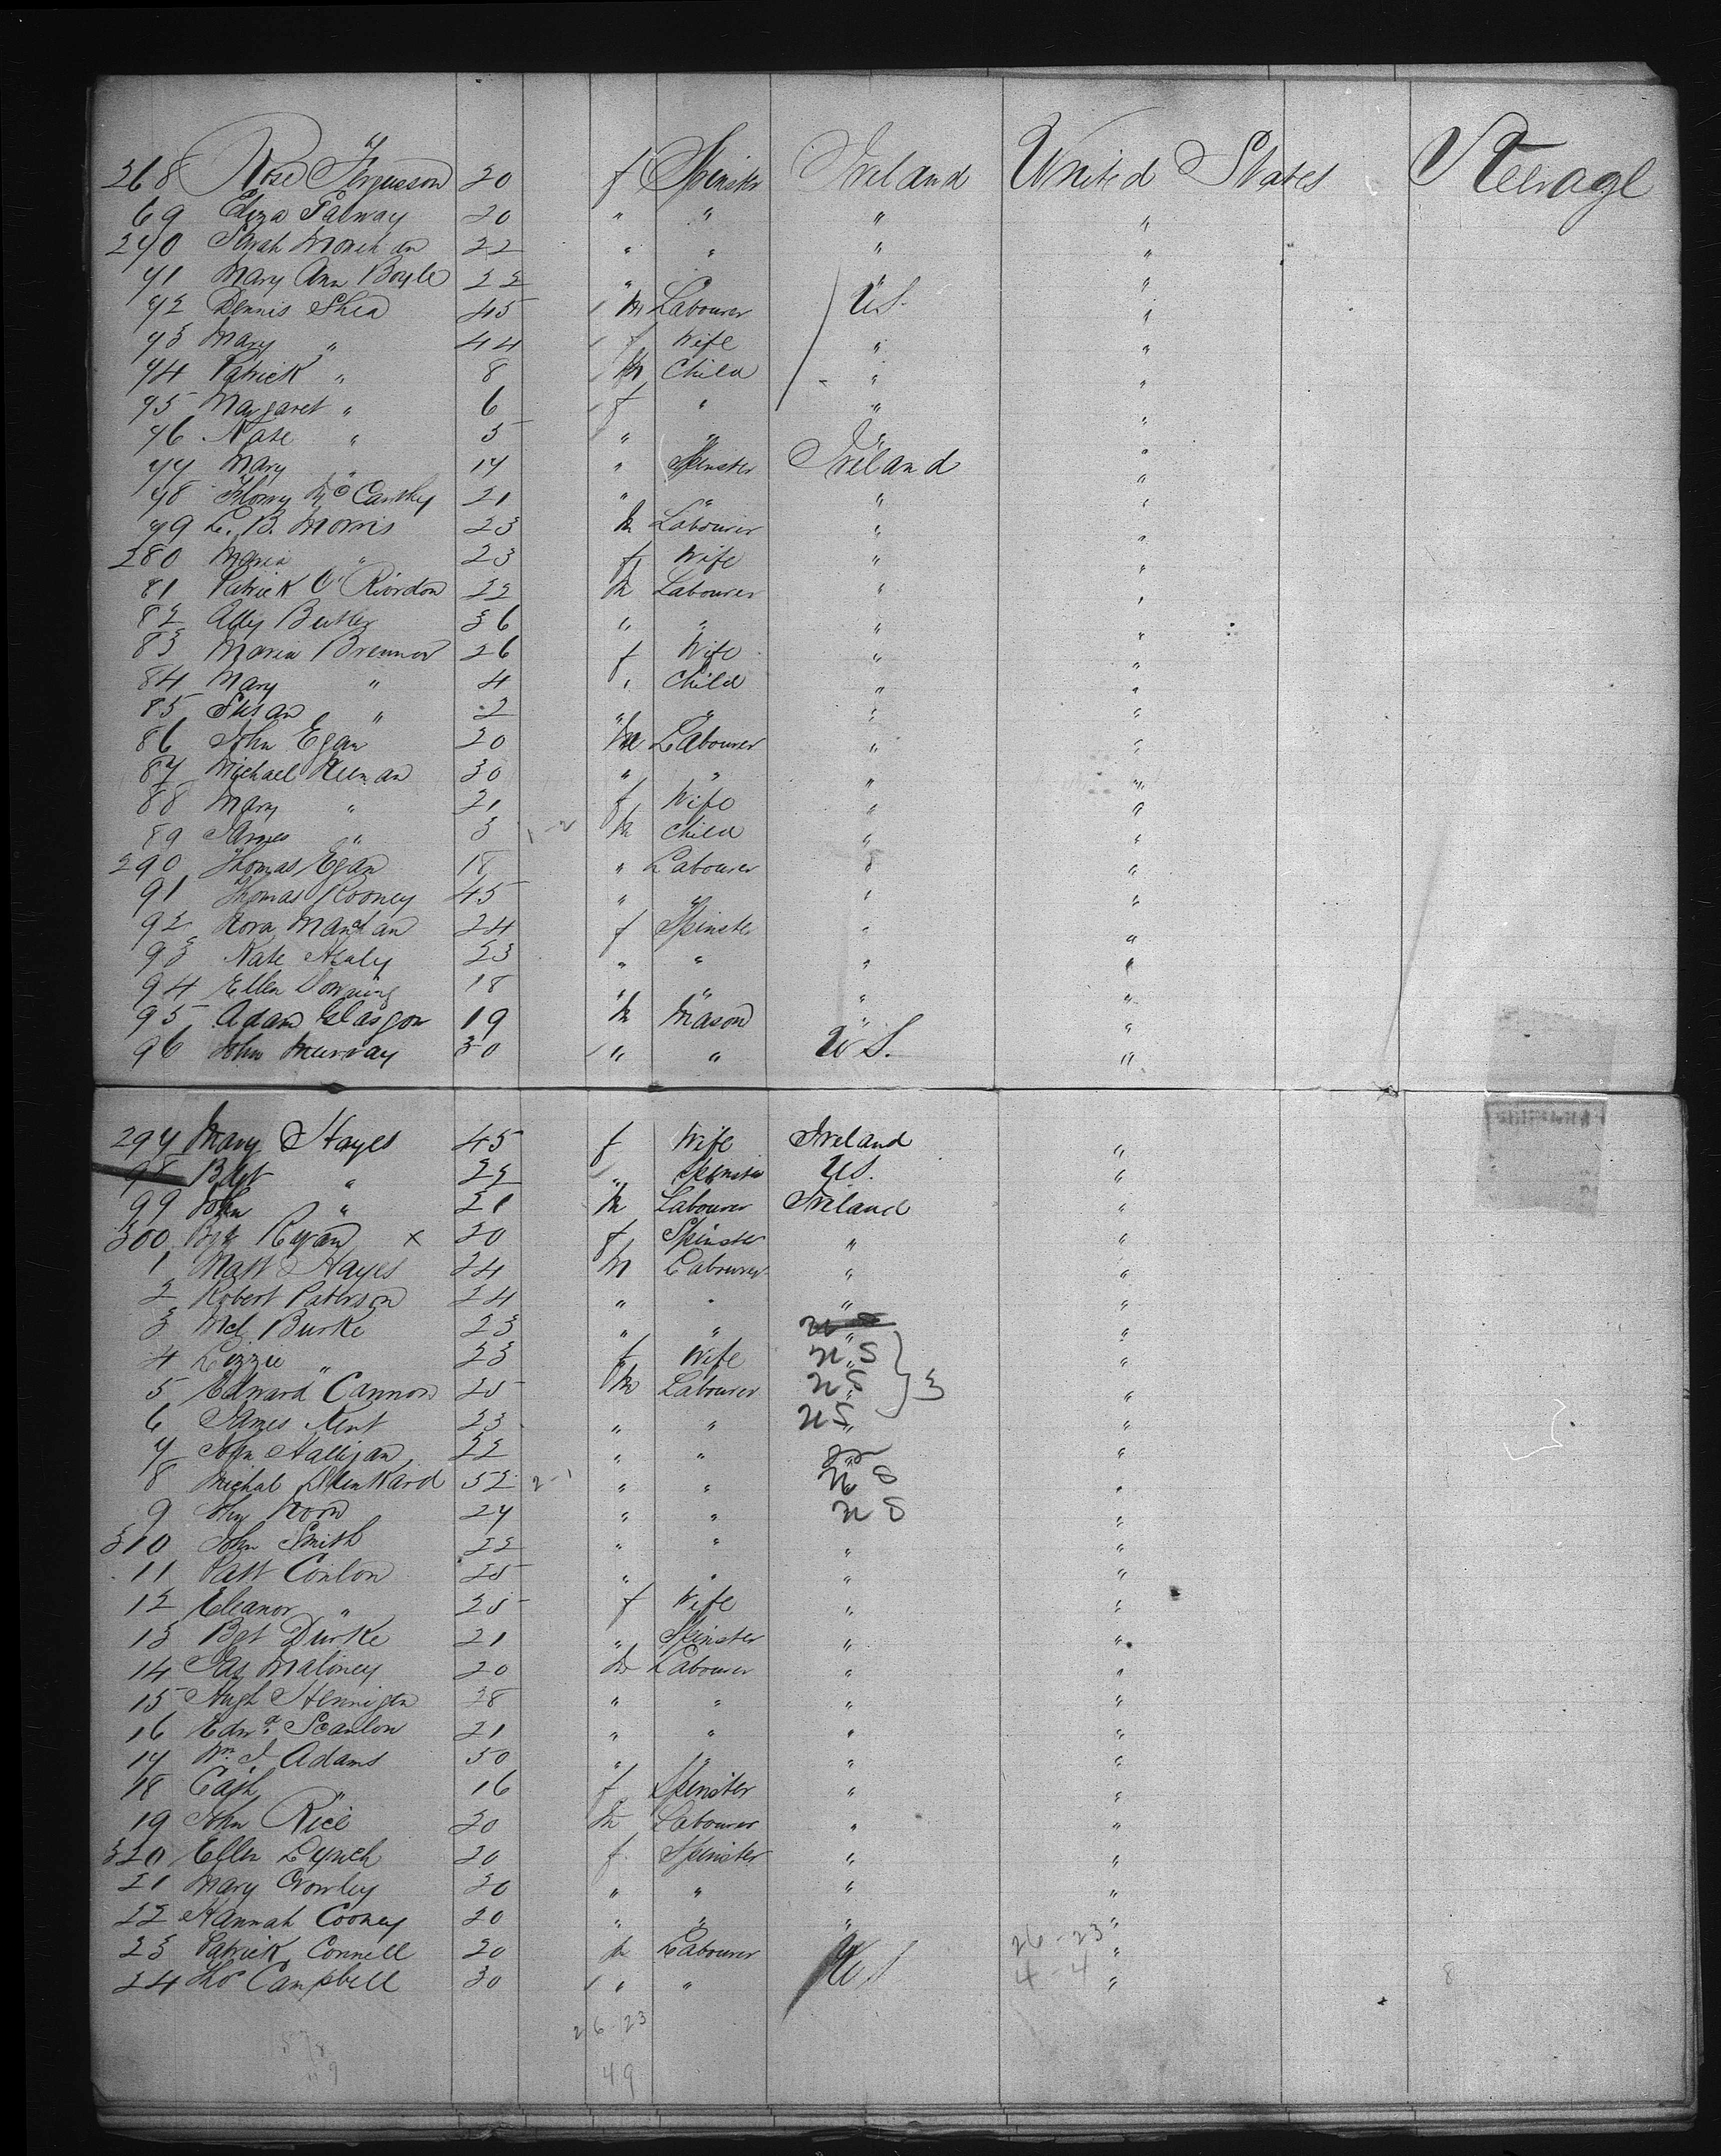 268 Rose Ferguson 20 f Spinster Ireland United States Steerage
69 Eliza 20 " " " "
270 Sarah 22 " " " "
71 Mary Ann Boyle 22 " " "
72 Dennis Shea 45 m Labourer U.S. "
73 Mary " 44 f Wife " "
74 Patrick " 8 m Child " "
75 Margaret " 6 f " " "
76 Kate " 5 " " " "
77 Mary " 17 " Spinster Ireland "
78 McCarthy 21 " " " "
79 L. B. Morris 23 m Labourer " "
280 Maria " 23 f Wife " "
81 Patrick O'Riordon 22 m Labourer " "
82 Butler 36 " " " "
83 Maria Brennan 26 f Wife " "
84 Mary " 4 " Child " "
85 Susan " 2 " " " "
86 John Egan 20 m Labourer " "
87 Michael Keenan 30 " " " "
88 Mary " 21 f Wife " "
89 James " 3 m Child " "
290 Thomas Egan 18 " Labourer " "
91 Thomas Rooney 45 " " " "
92 Nora 24 f Spinster " "
93 Kate Healy 23 " " " "
94 Ellen Downing 18 " " " "
95 Adam Glasgow 19 m Mason " "
96 John Murray 30 " " U.S. "
297 Mary Hayes 45 f Wife Ireland "
98 Bdgt " 22 " Spinster U.S. "
99 John " 21 m Labourer Ireland "
300 Ryan x 20 f Spinster " "
1 Matt Hayes 24 m Labourer " "
2 Robert Paterson 24 " " " "
3 Mcl Burke 23 " " "
4 Lizzie " 23 f Wife U S "
5 Edward Cannon 25 m Labourer U S " 3
6 James Kent 23 " " U S "
7 John Halligan 22 " " "
8 Michal 52 2-1 " " U S "
9 24 " " U S "
310 John Smith 22 " " " "
11 Patt Conlon 25 " " " "
12 Eleanor " 25 f Wife " "
13 Bgt Burke 21 " Spinster " "
14 Jas Maloney 20 m Labourer " "
15 Hugh Hennigan 38 " " " "
16 Edwd Scanlon 21 " " " "
17 Wm J Adams 50 " " " "
18 Cath " 16 f Spinster " "
19 John Rice 20 m Labourer " "
320 Ellen Lynch 20 f Spinster " "
21 Mary Crowley 20 " " " "
22 Hannah Cooney 20 " " " "
23 Patrick Connell 20 m Labourer " 26-23 "
24 Thos Campbell 30 " " U S 4-4 " 8
26-23
49